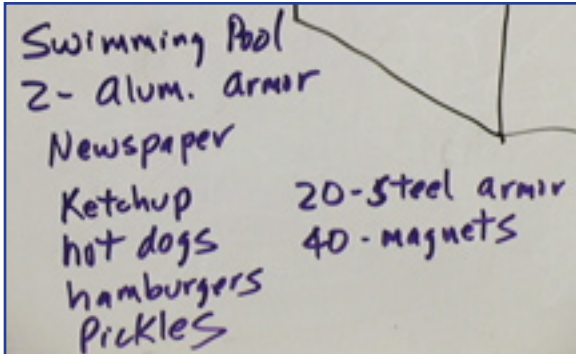 Swimming Pool
2- Alum. armor
Newspaper
Ketchup
hot dogs
hamburgers
Pickles
20-Steel armor
40-magnets